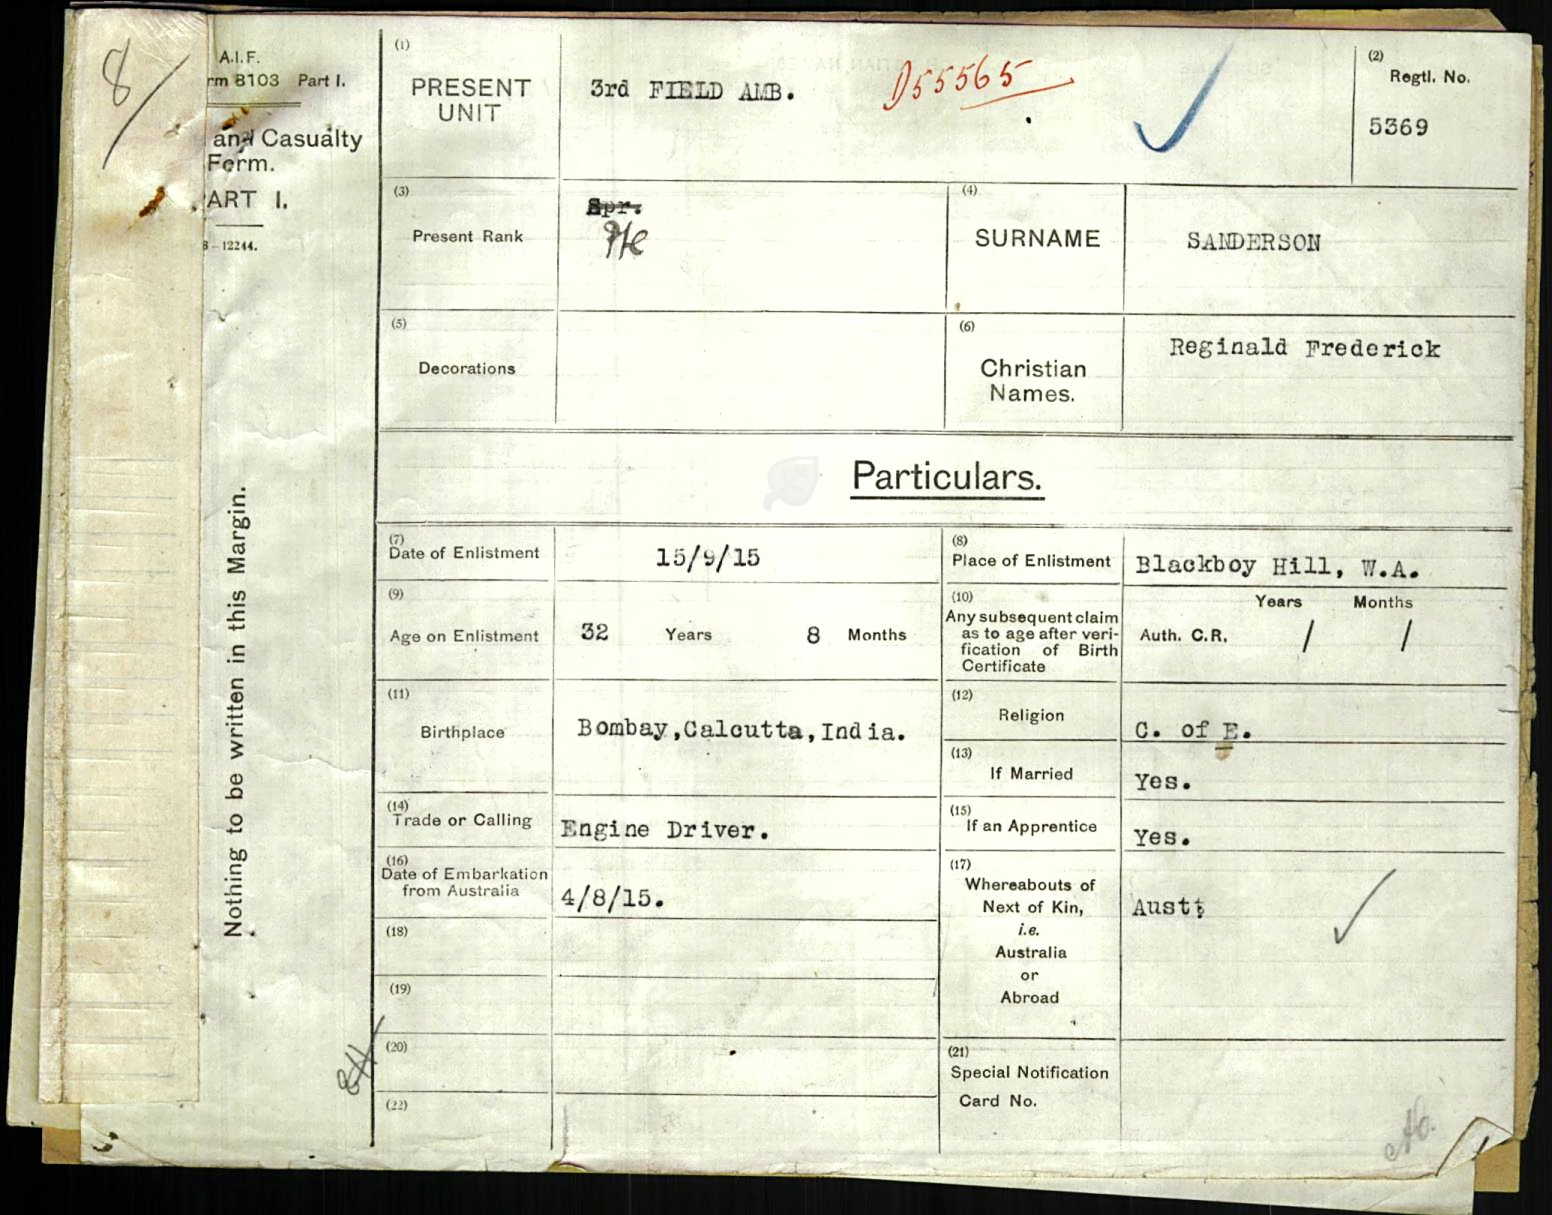 8/
A.I.F.
rm 8103 Part I.
and Casualty
Form.
ART I.
8—12244.
Nothing to be written in this Margin.
(1)
PRESENT
UNIT
3rd FIELD AMB.
D55565
(2)
Regtl. No.
5369
(3)
Present Rank
Spr.
Pte
(4)
SURNAME
SANDERSON
(5)
Decorations
(6)
Christian
Names.
Reginald Frederick
Particulars.
(7)
Date of Enlistment
15/9/15
(8)
Place of Enlistment
Blackboy Hill, W.A.
(9)
Age on Enlistment
32 Years 8 Months
(10)
Any subsequent claim
as to age after veri-
fication of Birth
Certificate
Years Months
Auth. C.R. / /
(11)
Birthplace
Bombay,Calcutta,India.
(12)
Religion
C. of E.
(13)
If Married
Yes.
(14)
Trade or Calling
Engine Driver.
(15)
If an Apprentice
Yes.
(16)
Date of Embarkation
from Australia
4/8/15.
(17)
Whereabouts of
Next of Kin,
i.e.
Australia
or
Abroad
(18)
(19)
(20)
(21)
Special Notification
Card No.
(22)